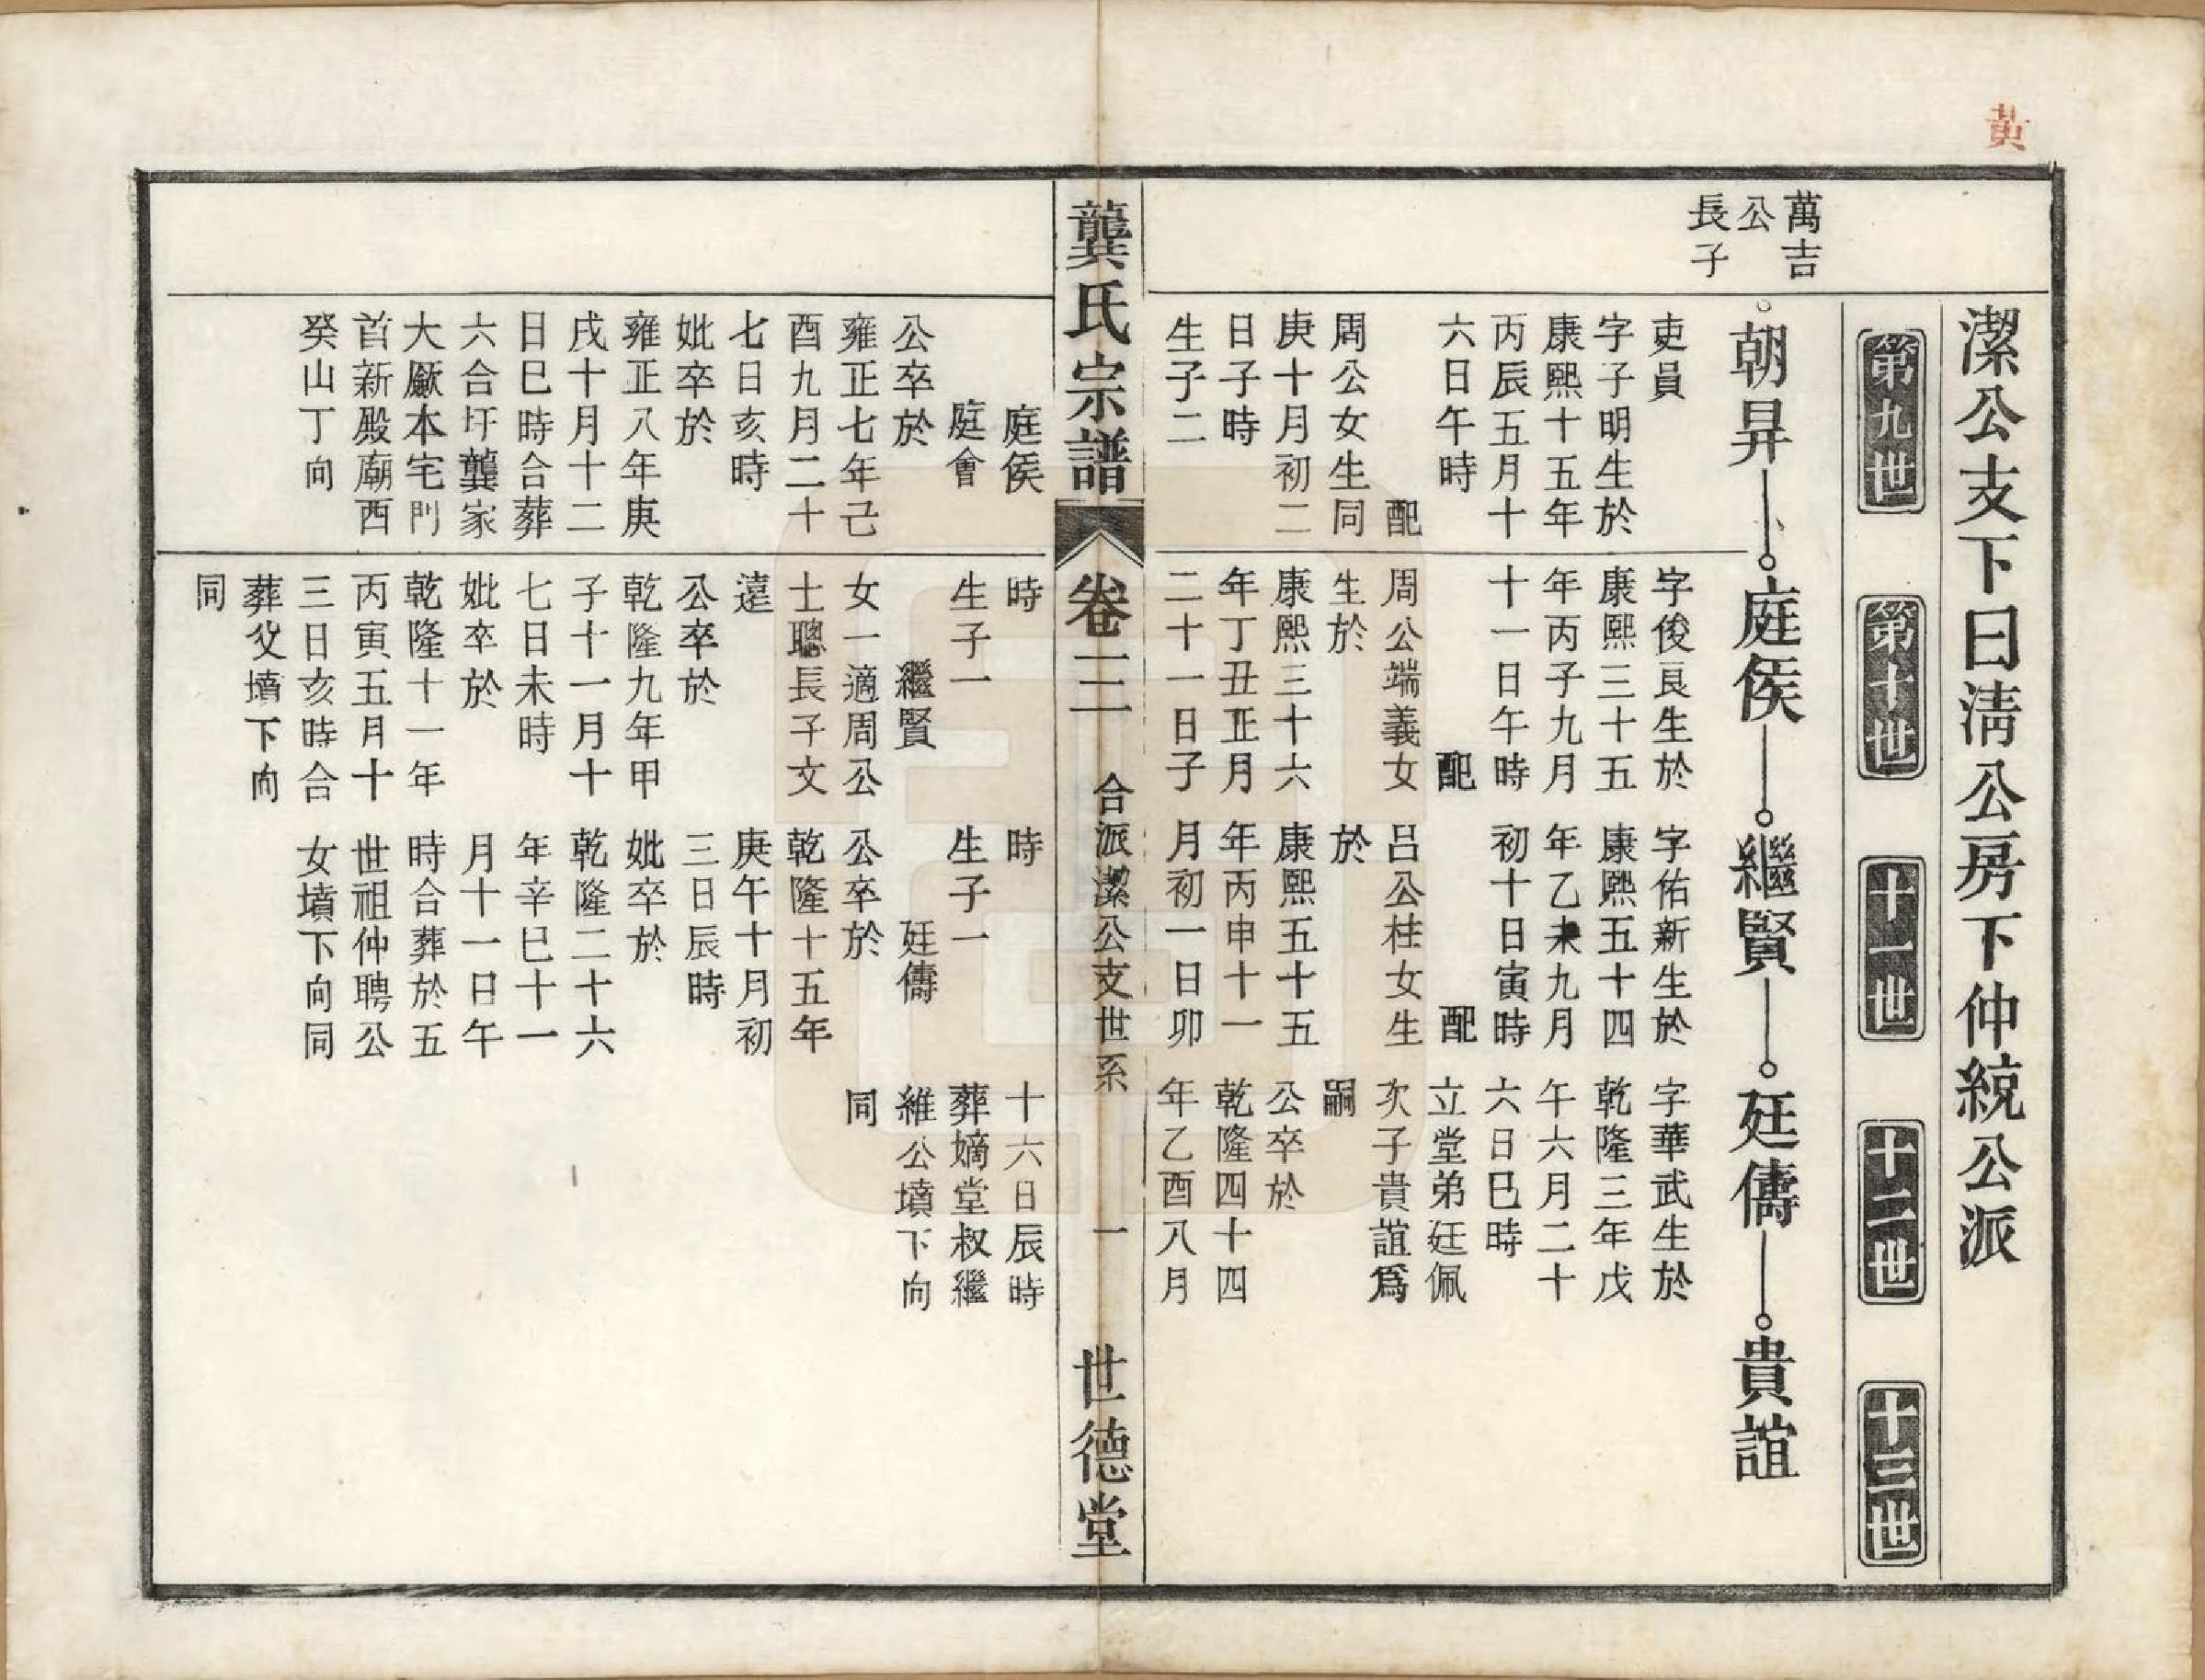 黃
潔公支下曰淸公房下仲統公派
第九世
第十世
十一世
十二世
十三世
萬吉
公
長子
朝昇
庭侯
繼賢
廷儔
貴誼
吏員
字子明生於
康熙十五年
丙辰五月十
六日午時
配
周公女生同
庚十月初二
日子時
生子二
字俊良生於
康熙三十五
年丙子九月
十一日午時
配
周公端義女
生於
康熙三十六
年丁丑正月
二十一日子
字佑新生於
康熙五十四
年乙未九月
初十日寅時
配
呂公柱女生
於
康熙五十五
年丙申十一
月初一日卯
字華武生於
乾隆三年戊
午六月二十
六日巳時
立堂弟廷佩
次子貴誼爲
嗣
公卒於
乾隆四十四
年乙酉八月
龔氏宗譜
卷三
合派潔公支世系
一
世德堂
庭侯
庭會
公卒於
雍正七年己
酉九月二十
七日亥時
妣卒於
雍正八年庚
戌十月十二
日巳時合葬
六合圩龔家
大厫本宅門
首新殿廟西
癸山丁向
時
生子一
繼賢
女一適周公
士聰長子文
遠
公卒於
乾隆九年甲
子十一月十
七日未時
妣卒於
乾隆十一年
丙寅五月十
三日亥時合
葬父墳下向
同
時
生子一
廷儔
公卒於
乾隆十五年
庚午十月初
三日辰時
妣卒於
乾隆二十六
年辛巳十一
月十一日午
時合葬於五
世祖仲聘公
女墳下向同
十六日辰時
葬嫡堂叔繼
維公墳下向
同